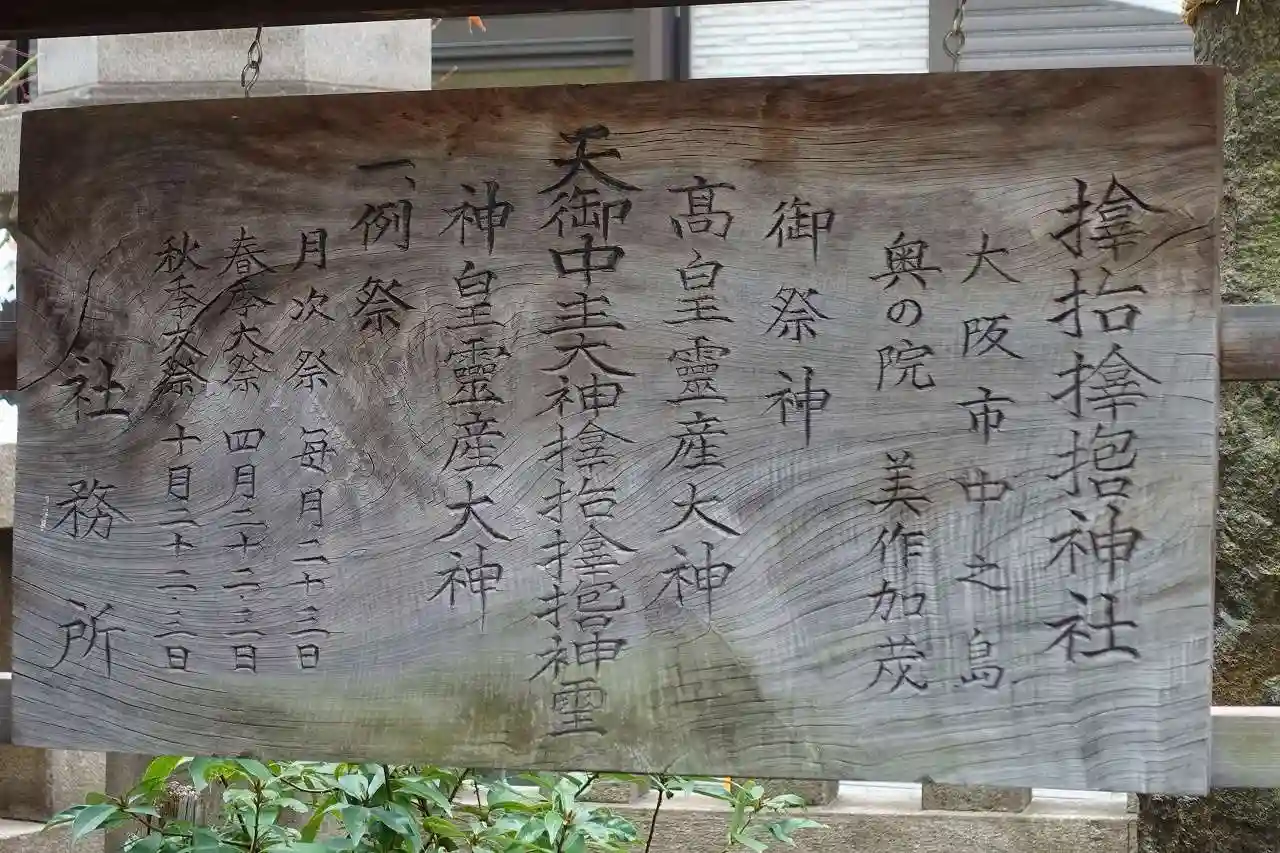 𪮷𫝼𪮇𫝵神社
大阪市中之島
奥の院 美作加茂
御祭神
髙皇靈産大神
天御中主大神𪮷𫝼𪮇𫝵神霊
神皇靈産大神
一、例祭
月次祭 毎月二十三日
春季大祭 四月二十二・三日
秋季大祭 十月二十二・三日
社務所